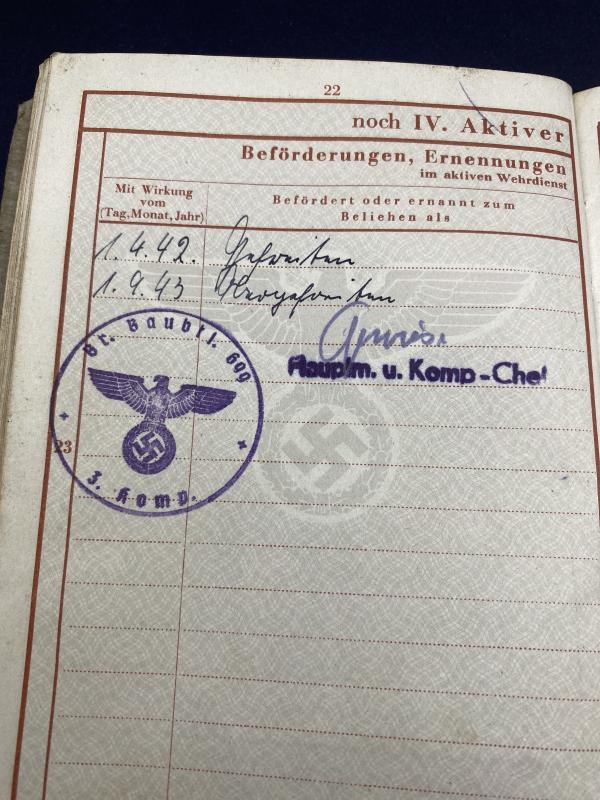 22
noch IV. Aktiver
Beförderungen, Ernennungen
im aktiven Wehrdienst
Mit Wirkung
vom
(Tag, Monat, Jahr)
Befördert oder ernannt zum
Beliehen als
1.4.42. Gefreiten
1.9.43 Obergefreiten
Hauptm. u. Komp-Chef
Br. Baubtl. 699
3. Komp.
23